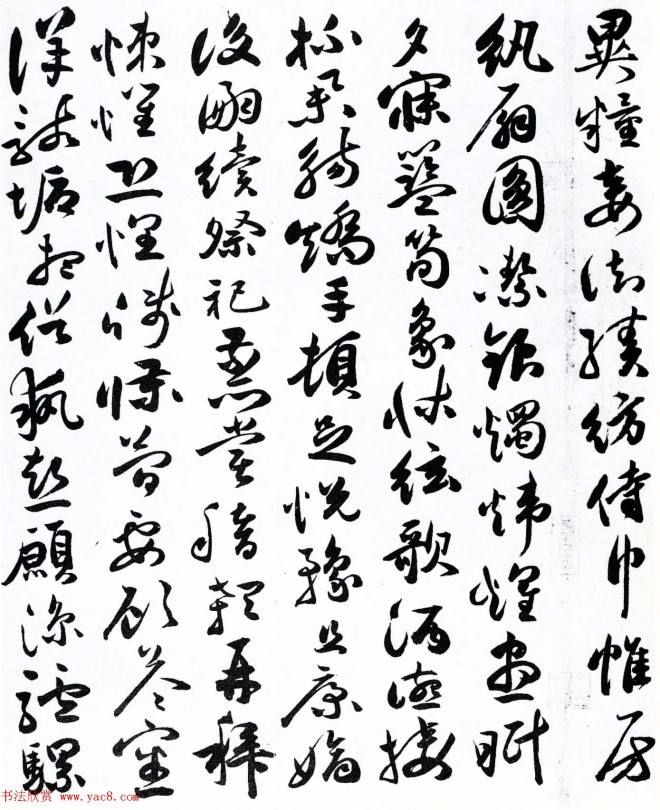 異糧妾御績紡侍巾帷房
紈扇圓潔銀燭煒煌晝眠
夕寐籃筍象床絃歌酒讌接
杯舉觴矯手頓足悅豫且康嫡
後嗣續祭祀蒸嘗稽顙再拜
悚懼恐惶牋牒簡要顧答審
詳骸垢想浴執熱願涼驢騾
书法欣赏 www.yac8.com